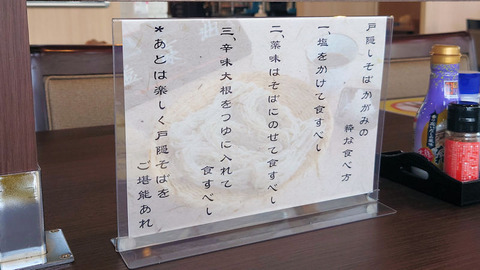 戸隠しそば かがみの
粋な食べ方
一、塩をかけて食すべし
二、薬味はそばにのせて食すべし
三、辛味大根をつゆに入れて
食すべし
*あとは楽しく戸隠そばを
ご堪能あれ